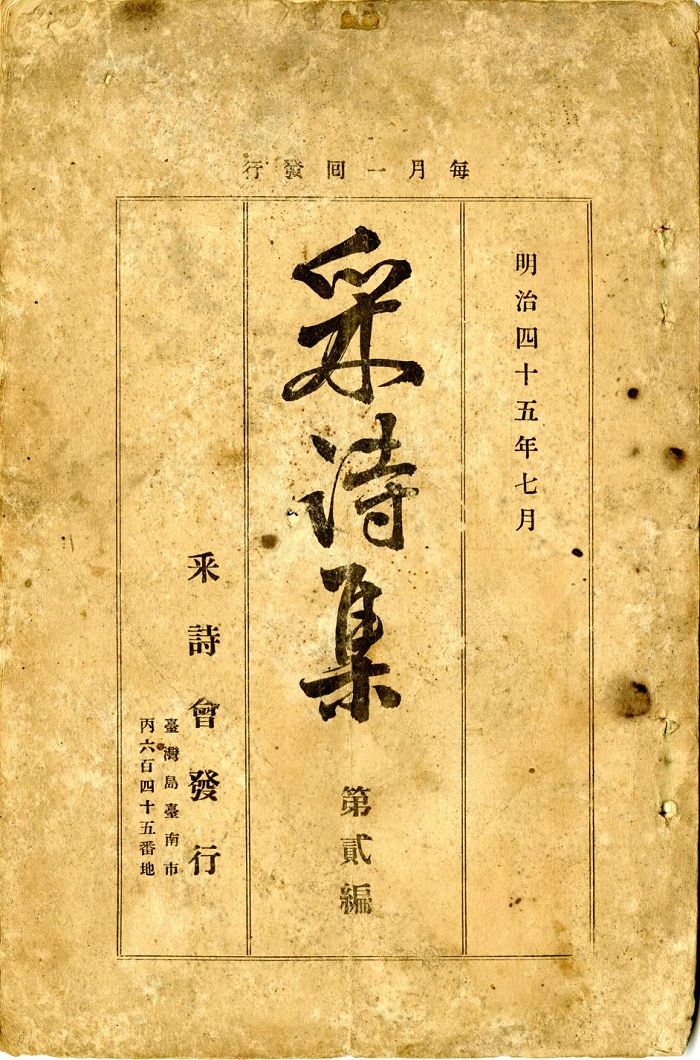 每月一回發行
明治四十五年七月
采詩集
第貳編
采詩會發行
臺灣島臺南市
丙六百四十五番地